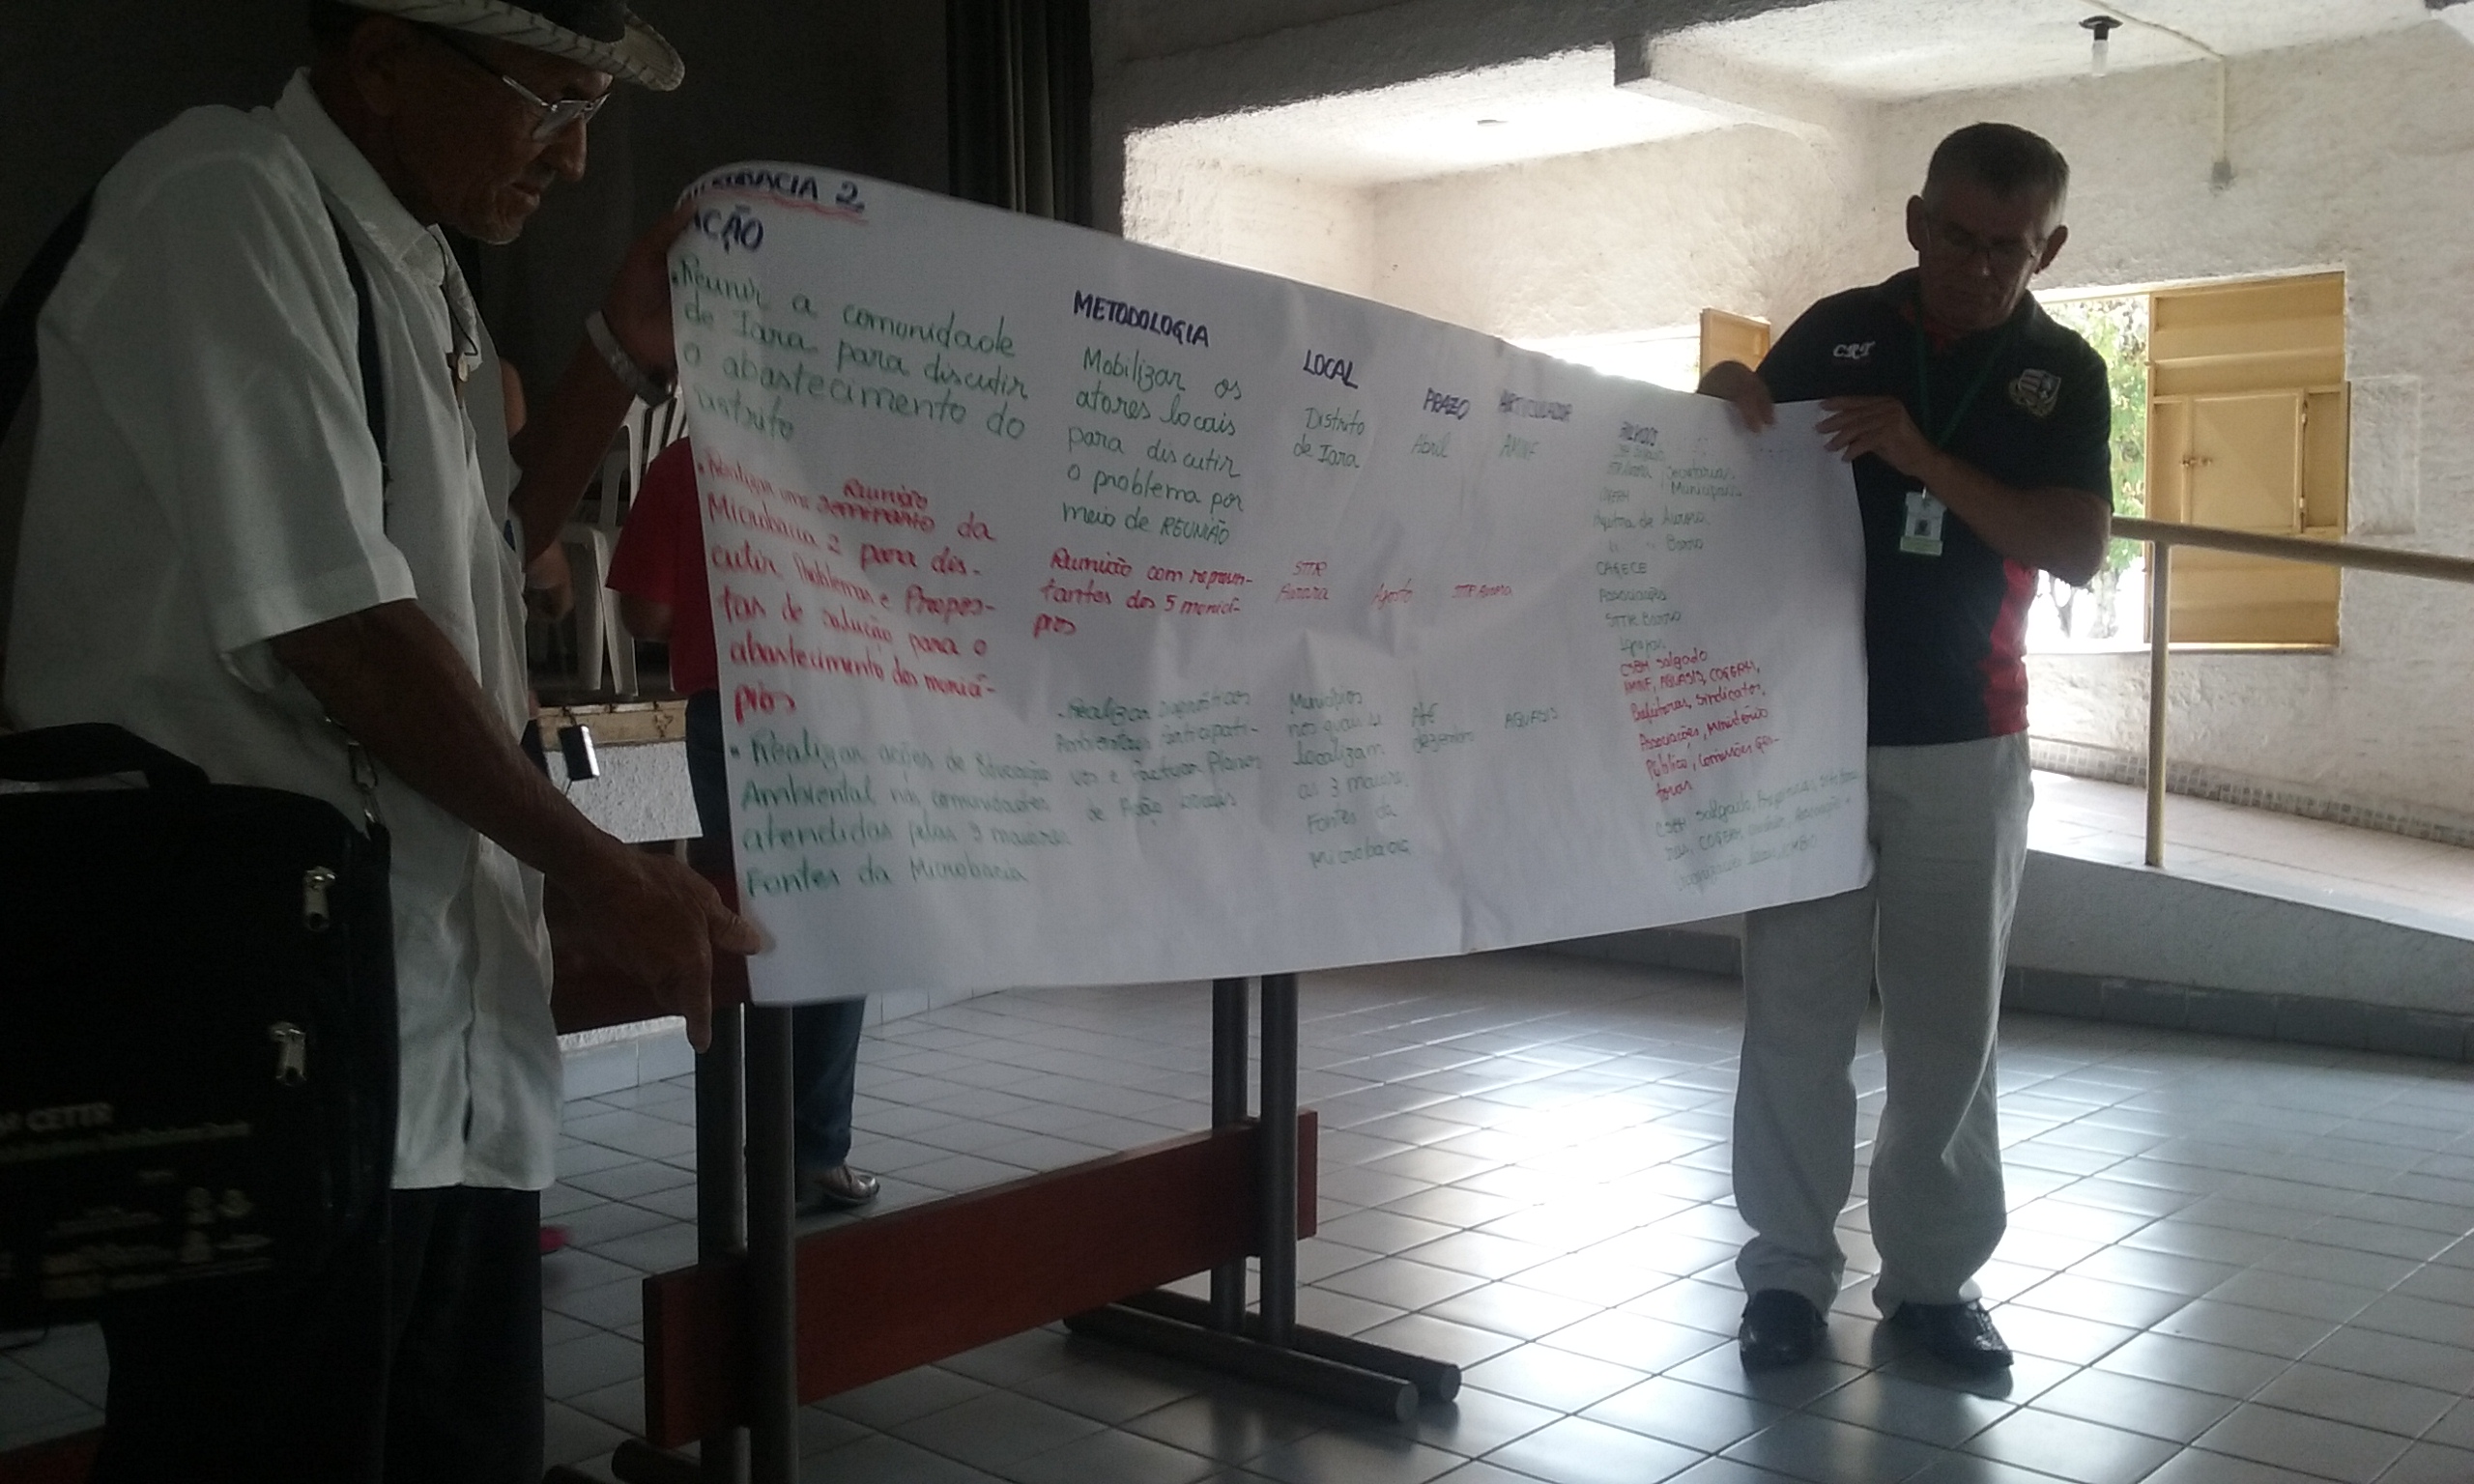 MICROBACIA 2
AÇÃO
• Reunir a comunidade
de Iara para discutir
o abastecimento do
distrito
• Realizar uma seminário Reunião da
Microbacia 2 para dis-
cutir Problemas e Propos-
tas de solução para o
abastecimento dos municí-
pios
• Realizar ações de Educação
Ambiental nas comunidades
atendidas pelas 3 maiores
Fontes da Microbacia
METODOLOGIA
Mobilizar os
atores locais
para discutir
o problema por
meio de REUNIÃO
Reunião com represen-
tantes dos 5 municí-
pios
- Realizar diagnósticos
Ambientais participati-
vos e Pactuar Planos
de Ação Locais
LOCAL
Distrito
de Iara
STTR
Aurora
Municípios
nos quais se
localizam
as 3 maiores
Fontes da
Microbacia
PRAZO
Abril
Agosto
Até
dezembro
ARTICULADOR
STTR Aurora
AQUASIS
Secretarias
Municipais
de Aurora
" " Barro
CAGECE
Associações
STTR Barro
Igrejas
CSBH Salgado
AQUASIS, COGERH,
Prefeituras, Sindicatos,
Associações, Ministério
Público, Comissões Ges-
toras
CSBH Salgado
COGERH
CRT
CETTR